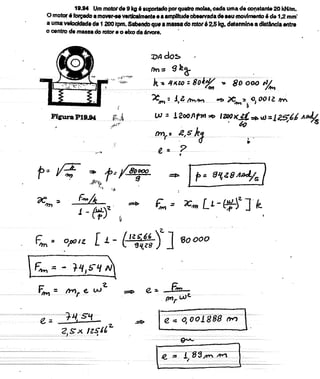 19.94 Um motor de 9 kg é suportado por quatro molas, cada uma de constante 20 kN/m.
O motor é forçado a mover-se verticalmente e a amplitude observada de seu movimento é de 1,2 mm
a uma velocidade de 1 200 rpm. Sabendo que a massa do rotor é 2,5 kg, determine a distância entre
o centro de massa do rotor e o eixo da árvore.
DADOS
m = 9 kg
k = 4x20 = 80 kN/m = 80 000 N/m
xm = 1,2 mm ⇒ xm = 0,0012 m
Figura P19.94
ω = 1200 rpm ⇒ 1200 x 2π/60 ⇒ ω = 125,66 rad/s
mr = 2,5 kg
e = ?
p = √k/m ⇒ p = √80000/9 ⇒ p = 94,28 rad/s
xm = Fm/k / 1 - (ω/p)² ⇒ Fm = xm [1 - (ω/p)²] k
Fm = 0,0012 [1 - (125,66/94,28)²] 80 000
Fm = - 74,54 N
Fm = mr e ω² ⇒ e = Fm / mr ω²
e = 74,54 / 2,5 x 125,66² ⇒ e = 0,001888 m
ou
e = 1,89 mm